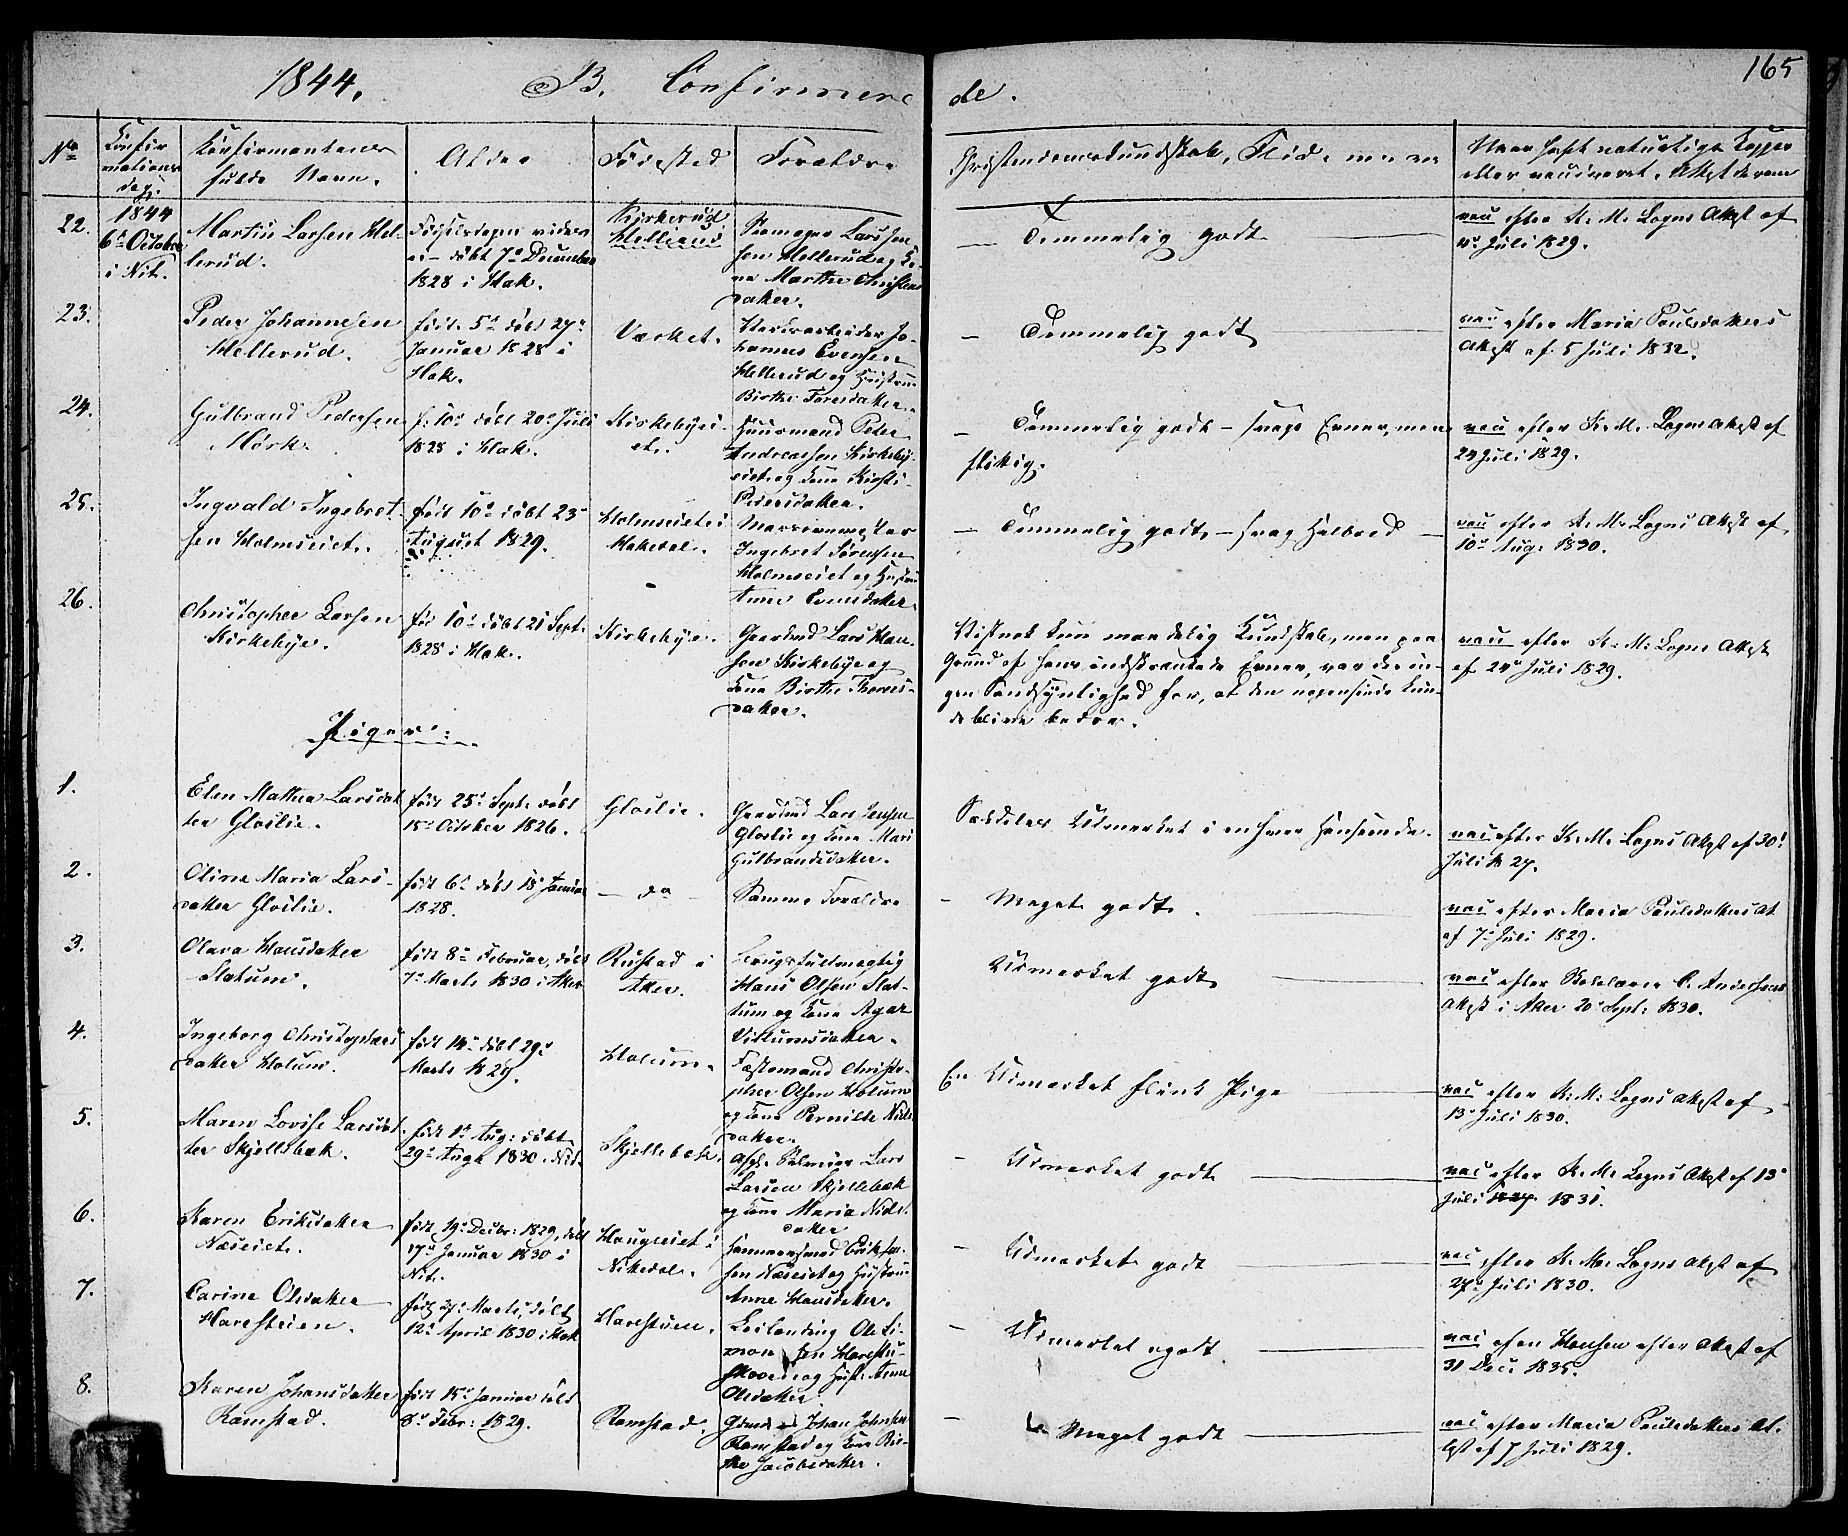 1844.
B. Confirmerede.
165
No.
Confirmationsdag.
Confirmantens fulde Navn.
Alder
Fødested
Forældre
Christendomskundskab, Flid
Naar havt naturlige Kopper eller vaccineret. Attest derom
22.
1844
6te October
i Nit.
Martin Larsen Hellerud.
døbt 7de December
1828 i Hak.
Kirkerud
Lars
Hellerud og Kone
Marthe Christensdatter.
Temmelig godt
vac efter K. M. Logns Attest af
Juli 1829.
23.
Peder Johannesen
Hellerud.
født 5te døbt 27de
Januar 1828 i
Hak.
Værket.
Værksarbeider Johannes Evensen
Hellerud og Hustru
Birthe Toresdatter.
Temmelig godt
vac efter Maria Paulsdatters
Attest af 5 Juli 1832.
24.
Gulbrand Pedersen
Mork.
f. 10de døbt 20de Juli
1828 i Hak.
Kirkebyeiet.
Huusmand Peder
Andreassen Kirkebyeiet og Kone Kirsti
Pedersdatter.
Temmelig godt – svage Evner, men
flittig.
vac efter K. M. Logns Attest af
24 Juli 1829.
25.
Ingvald Ingebretsen Holmseiet.
født 10de døbt 23de
August 1829.
Holmseiet i
Hakedal.
Ingebret Sørensen
Holmseiet og Hustru
Anne Evensdatter.
Temmelig godt, – svag Helbred
vac efter K. M. Logns Attest af
10de Aug. 1830.
26.
Christopher Larsen
Kirkebye.
født 10de døbt 21 Sept.
1828 i Hak.
Kirkebye.
Gaardmd Lars Hansen Kirkebye og
Kone Birthe Thoresdatter.
Vistnok kun maadelig Kundskab, men paa
Grund af hans indskrænkede Evner, var der ingen Sandsynlighed for, at den nogensinde kunde blive bedre.
vac efter K. M. Logns Attest
af 24de Juli 1829.
Piger:
1.
Elen Mathea Larsdatter Gloslie.
født 25de Sept. døbt
15de October 1826.
Gloslie.
Gaardmd Lars Jensen
Gloslie og Kone Mari
Gulbrandsdatter.
Særdeles Udmærket i enhver Henseende.
vac efter K. M. Logns Attest af 30te
Juli 1827.
2.
Oline Maria Larsdatter Gloslie.
født 6te døbt 18de Januar
1828.
– do –
Samme Forældre
– Meget godt.
vac efter Maria Paulsdatters At.
af 7de Juli 1829.
3.
Olava Hansdatter
Slatum.
født 8de Februar, døbt
7de Marts 1830 i Aker
Rustad i
Aker.
Brugsfuldmægtig
Hans Olsen Slattum og Kone Agate
Udmærket godt
vac efter Skolelærer C. Andersens
Attest i Aker 20de Sept. 1830.
4.
Ingeborg Christophersdatter Holum.
født 14de døbt 29de
Marts 1829.
Holum.
Fæstemand Christopher Olsen Holum
og Kone Pernille Nielsdatter.
En Udmærket flink Pige
vac efter K. M. Logns Attest af
13de Juli 1830.
5.
Maren Lovise Larsdatter Skjellebæk.
født 1ste Aug. døbt
29de Aug. 1830. Nit.
Skjellebæk.
Lars
Larsen Skjellebæk
og Kone Maria Nielsdatter
– Udmærket godt
vac efter K. M. Logns Attest af 13de
Juli 1831.
6.
Karen Eriksdatter
Næseiet.
født 19de Decbr. 1829, døbt
17de Januar 1830 i
Nit.
Haugeiet i
Nitedal.
Hammersmed Erik
Næseiet og Hustru
Anne Hansdatter.
– Udmærket godt
vac efter K. M. Logns Attest af
27de Juli 1830.
7.
Carine Olsdatter
Harestuen.
født 27de Marts, døbt
12te April 1830 i Hak
Harestuen.
Leilænding Ole Simonsen Harestuskoven og Hust. Anne
Olsdatter
– Udmærket godt
vac Hansen efter Attest af
31 Dec. 1835.
8.
Karen Johansdatter
Ramstad.
født 15de Januar døbt
8de Febr. 1829.
Ramstad.
Johan Johnsen
Ramstad og Kone Birthe Jacobsdatter.
– Meget godt
vac efter Maria Paulsdatters Attest af 7 Juli 1829.